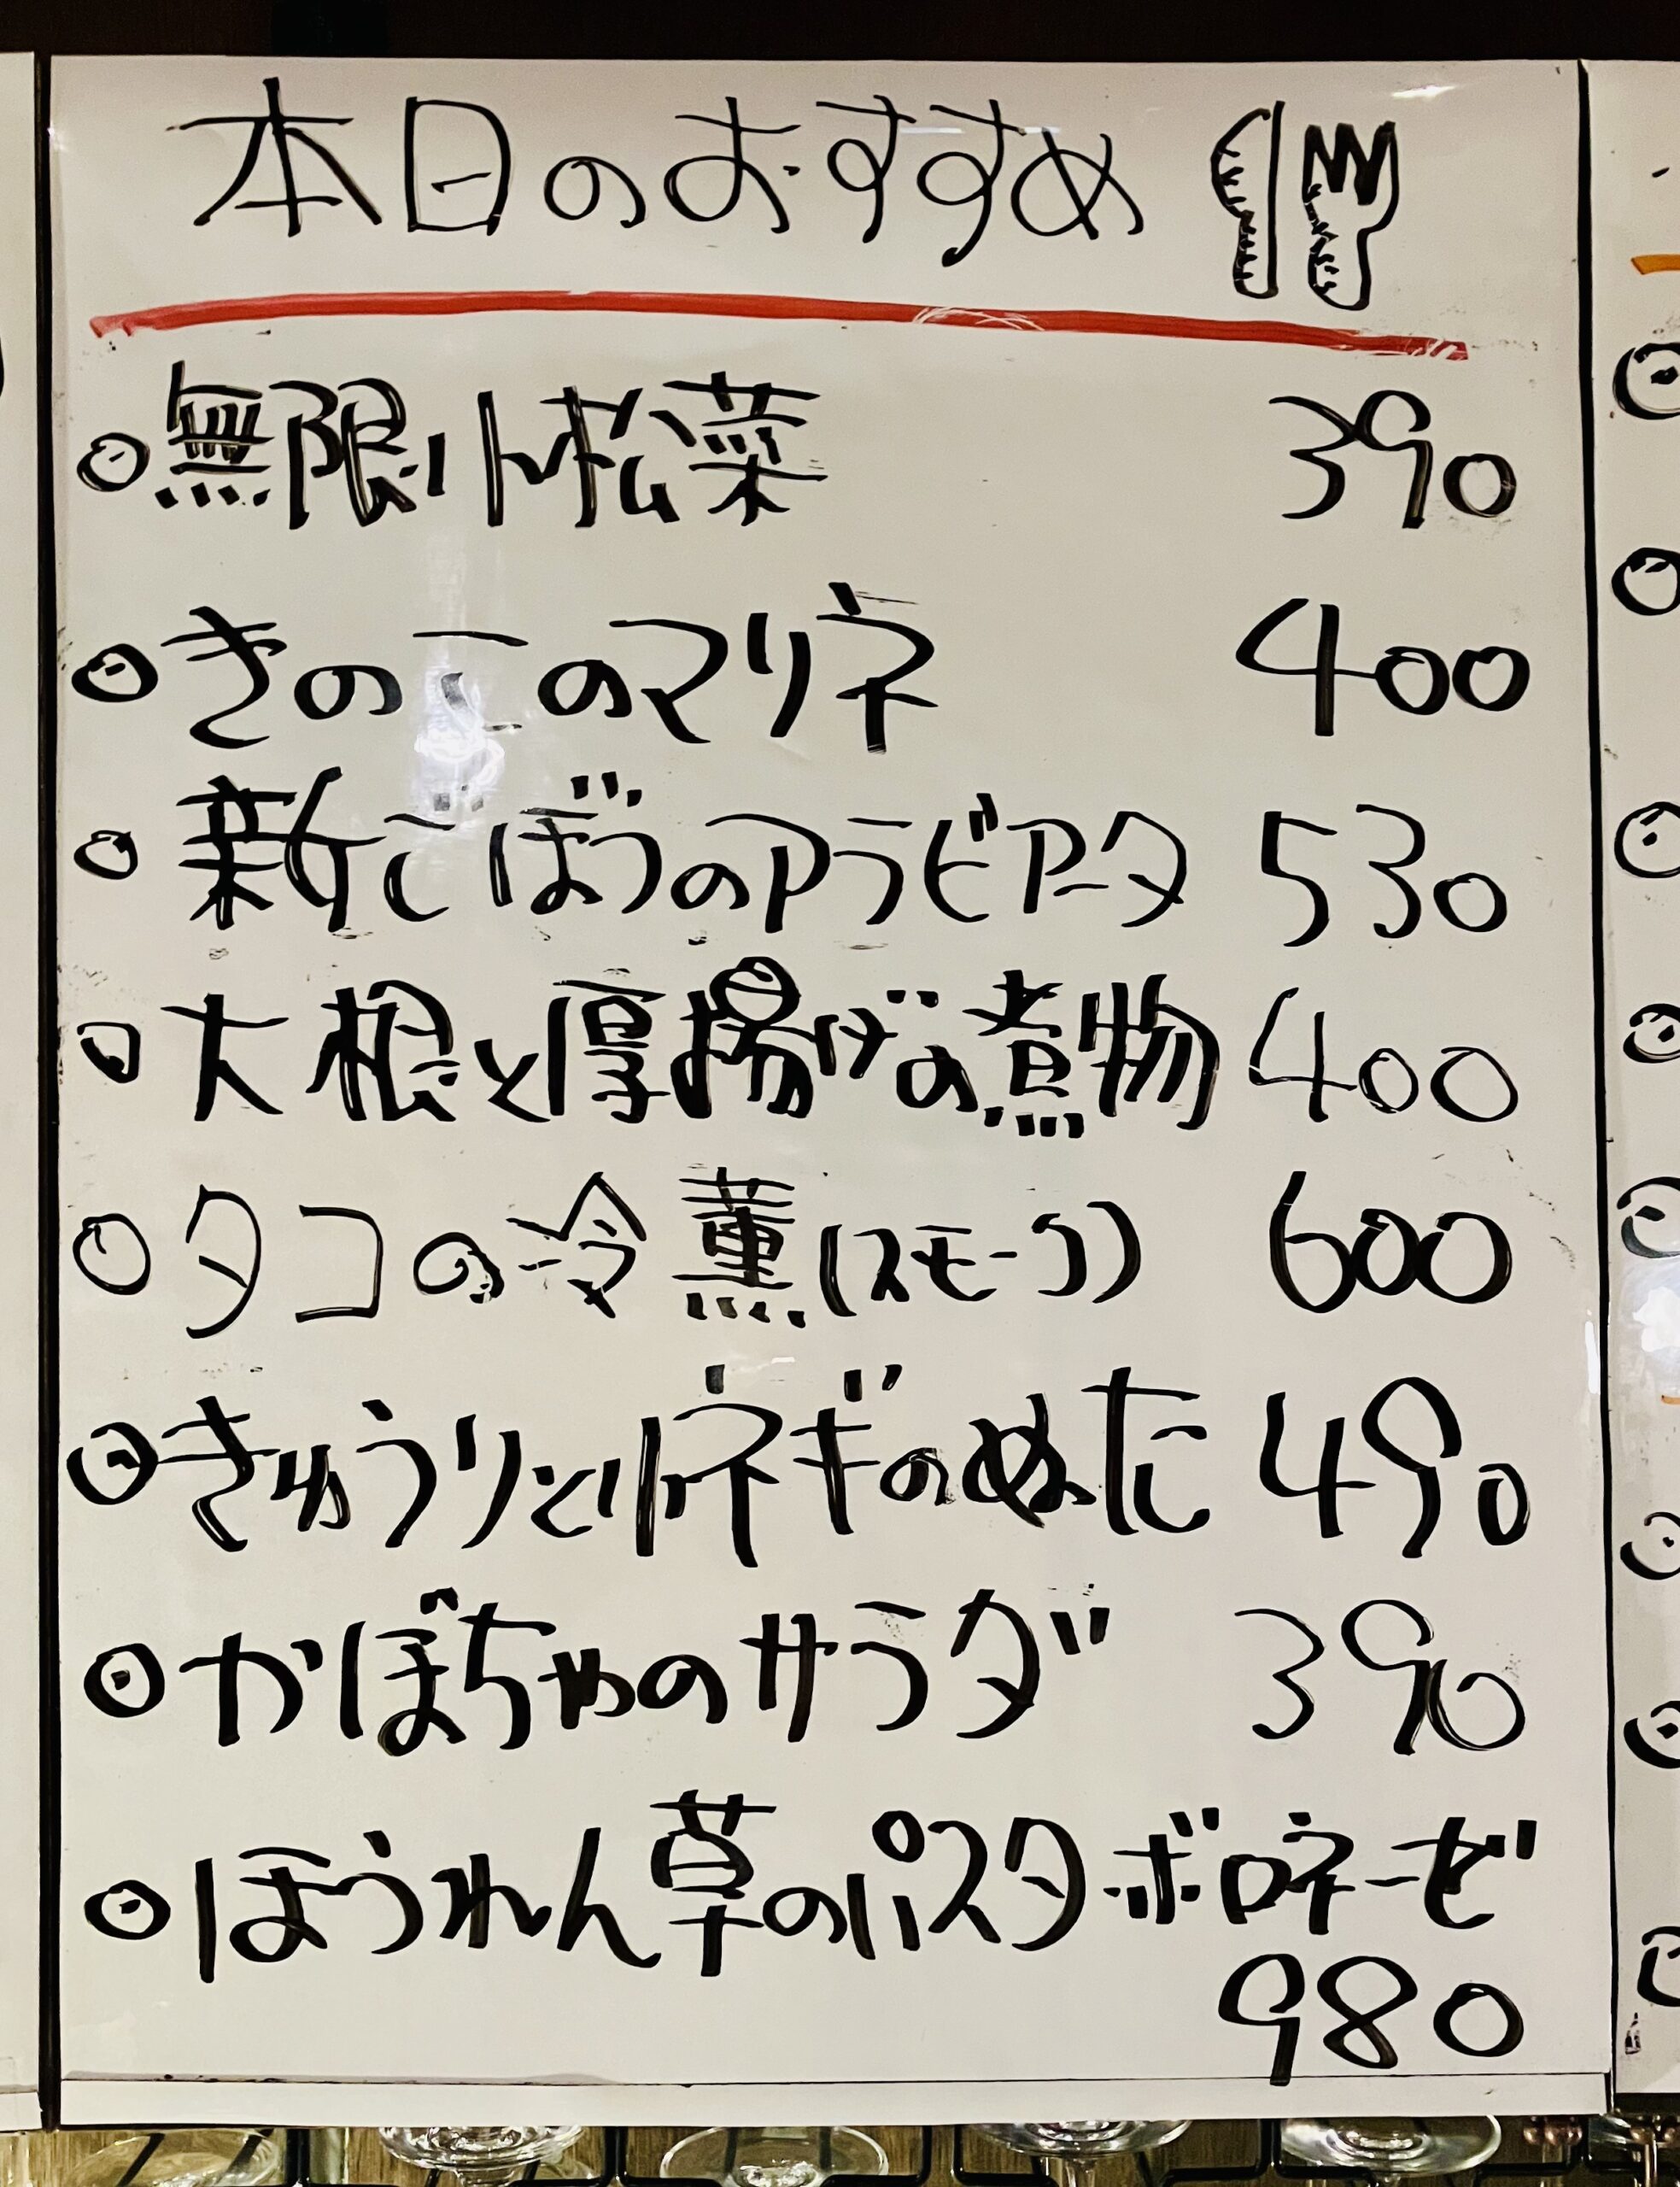 本日のおすすめ
無限小松菜 390
きのこのマリネ 400
新ごぼうのアラビアータ 530
大根と厚揚げの煮物 400
タコの冷薫(スモーク) 600
きゅうりと小ネギのぬた 490
かぼちゃのサラダ 390
ほうれん草のパスタボロネーゼ
980